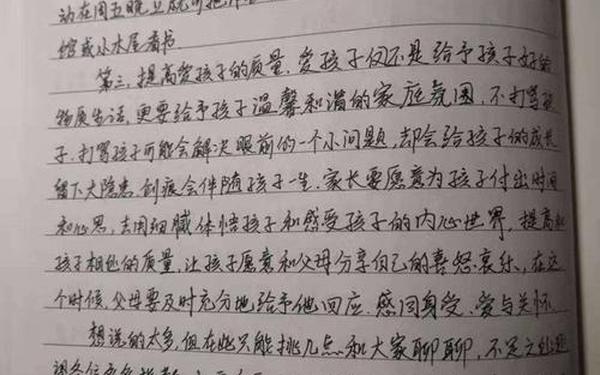 动在周五晚上就可把
馆或小木屋看书.
第三.提高爱孩子的质量.爱孩子仅不是给予孩子好的
物质生活,更要给予孩子温馨和满的家庭氛围,不打骂孩
子.打骂孩子可能会解决眼前的一个小问题,却会给孩子的成长
留下大隐患.创痕会伴随孩子一生.家长要愿意为孩子付出时间
和心思,去用细腻体悟孩子和感受孩子的内心世界,提高和
孩子相处的质量,让孩子愿意和父母分享自己的喜怒哀乐,在这
个时候,父母要及时充分地给予他回应.感同身受.爱与关怀.
想说的太多,但在此只能挑几点和大家聊聊,不足之处还